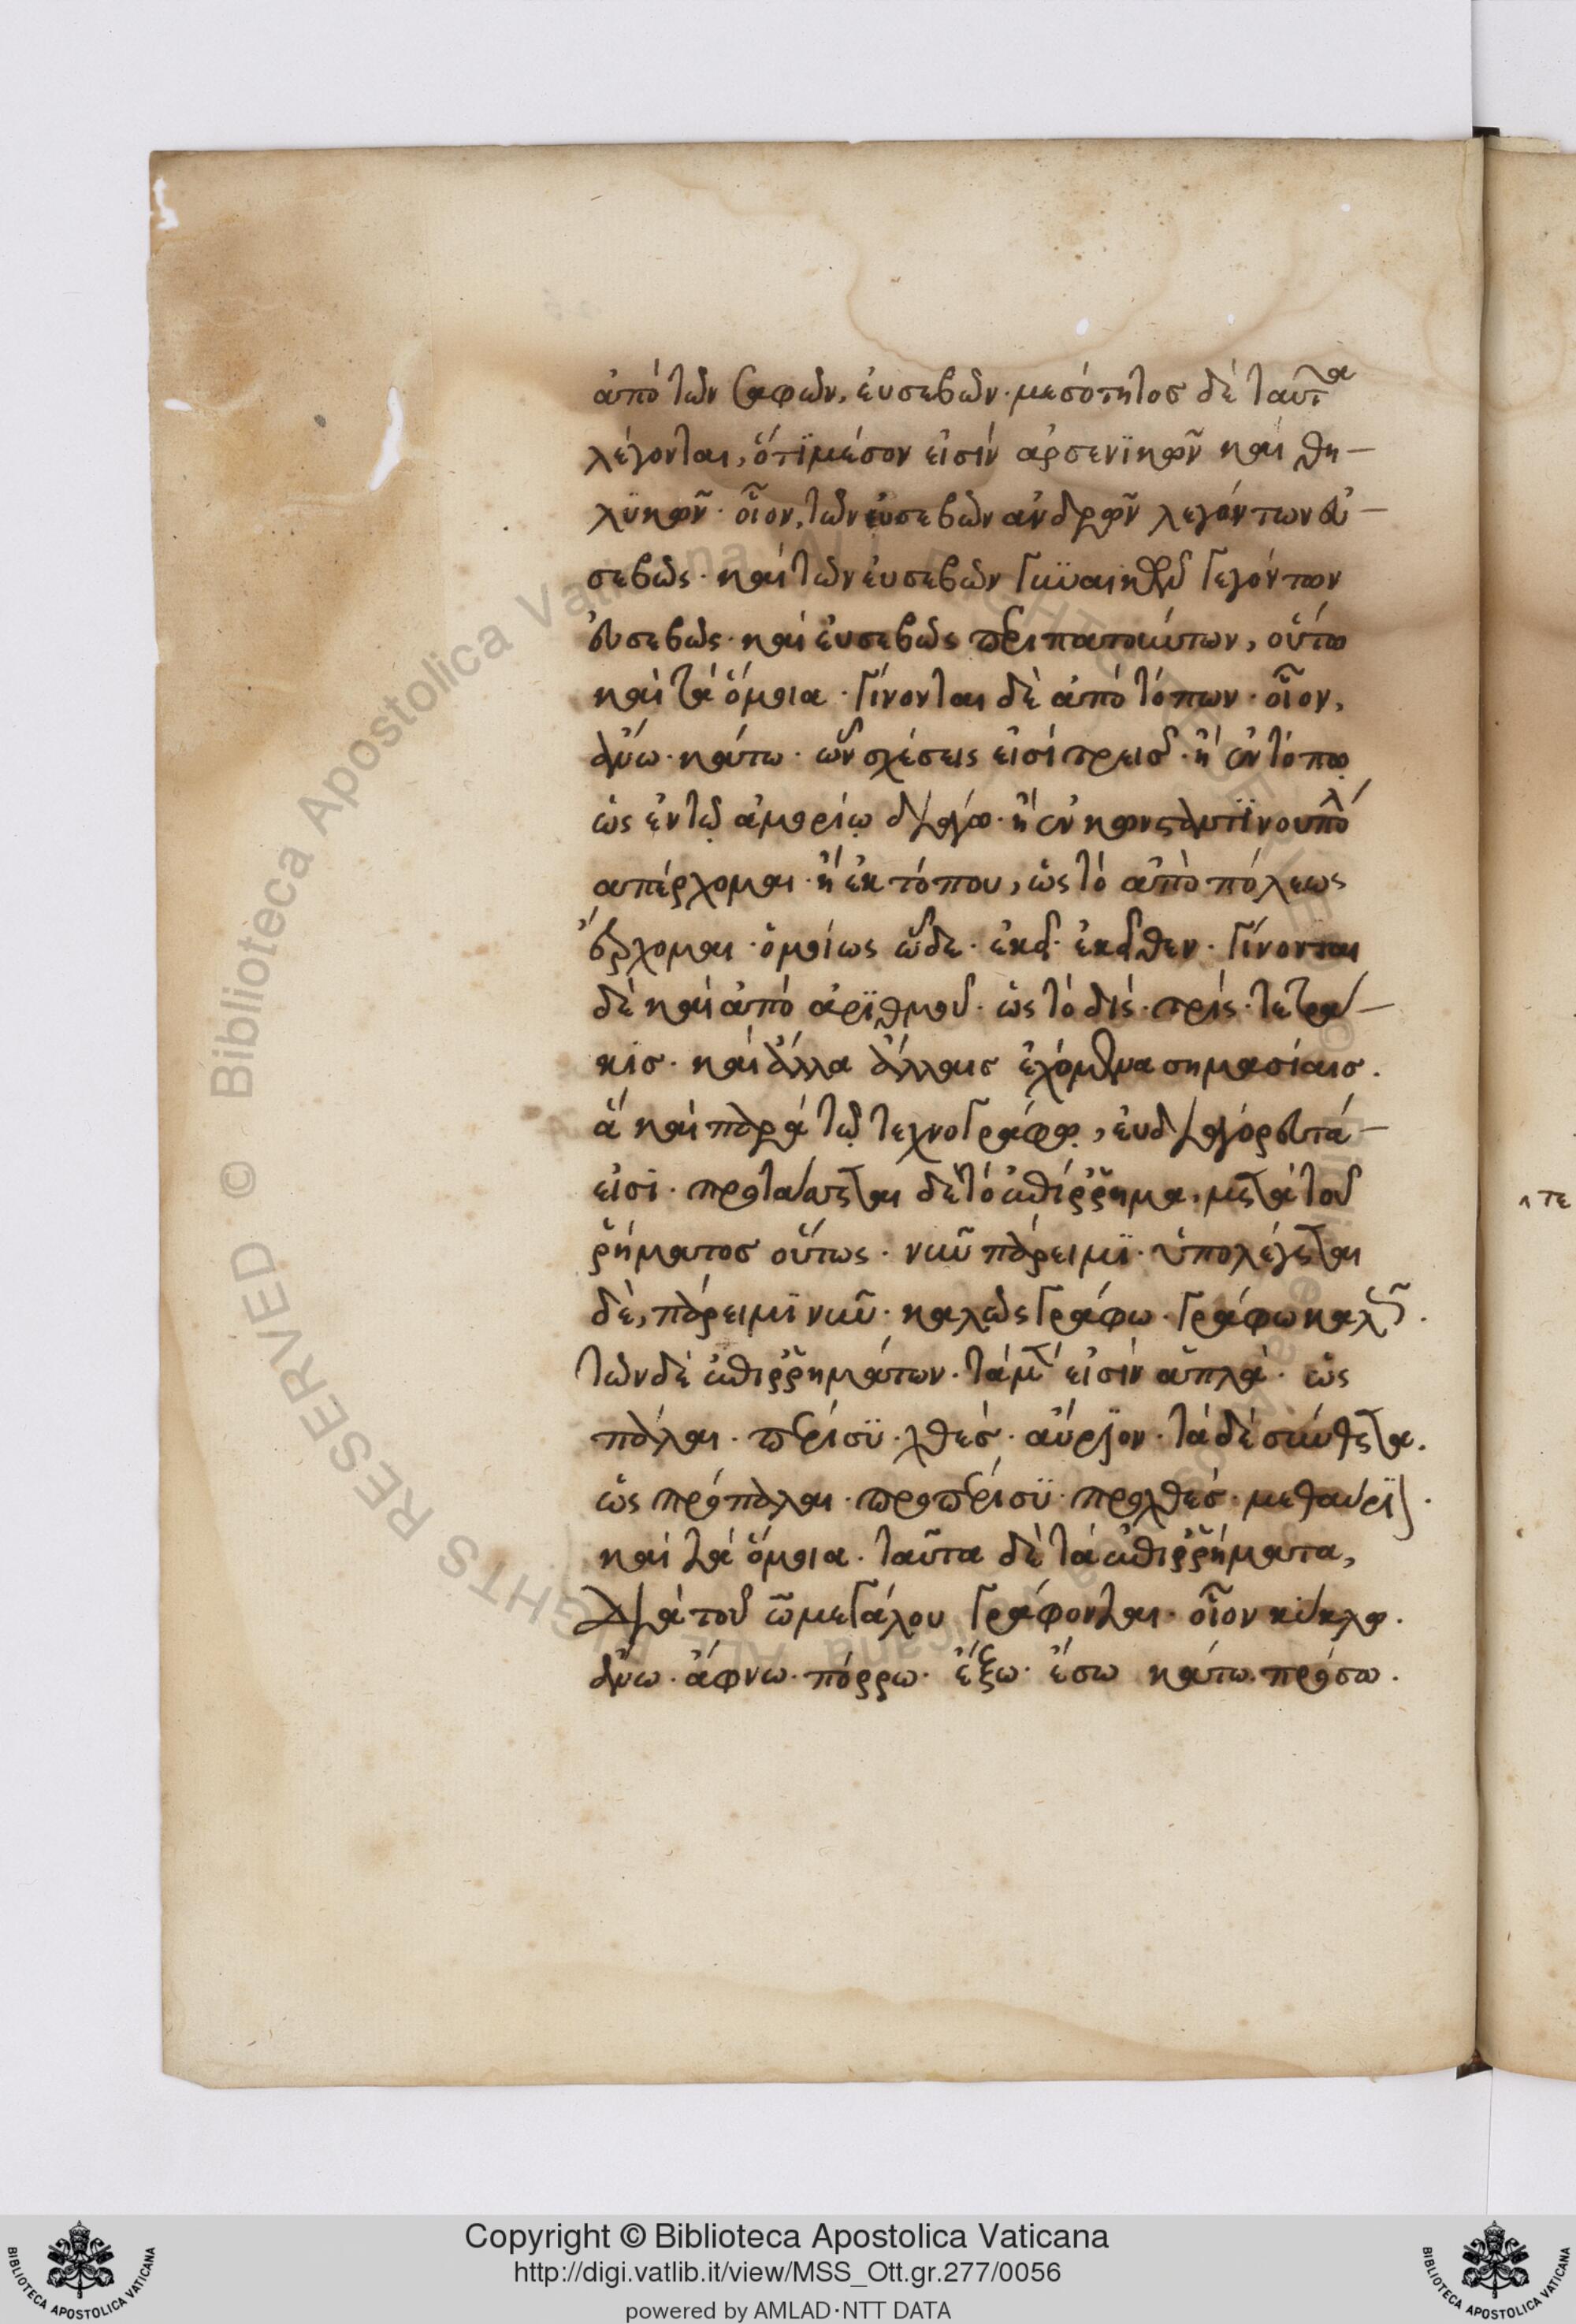 ἀπὸ τῶν σαφῶν, εὐσεβῶν· μεσότητος δὲ ταῦτα
λέγονται, ὅτι μέσον εἰσὶν ἀρσενϊκῶν καὶ θη-
λϋκῶν· οἷον, τῶν εὐσεβῶν ἀνδρῶν λεγόντων εὐ-
σεβῶς· καὶ τῶν εὐσεβῶν γυναικῶν λεγόντων
εὐσεβῶς· καὶ εὐσεβῶς περιπατούντων, οὕτω
καὶ τὰ ὅμοια· γίνονται δὲ ἀπὸ τόπων· οἷον,
ἄνω· κάτω· ὧν σχέσεις εἰσὶ τρεῖς· ἢ ἐν τόπῳ
ὡς ἐν τῷ ἀμορίῳ διάγω· ἢ ἐν κωνσταντΐνουπόλ
ἀπέρχομαι· ἢ ἐκ τόπου, ὡς τὸ ἀπὸ πόλεως
ἔρχομαι· ὁμοίως ὧδε· ἐκεῖ· ἐκεῖθεν· γίνονται
δὲ καὶ ἀπὸ ἀρϊθμοῦ· ὡς τὸ δίς· τρίς· τετρά-
κις· καὶ ἄλλα ἄλλαις ἐχόμενα σημασίαις.
ἃ καὶ παρὰ τῷ τεχνογράφῳ, εὐδιάγόρευτά-
εἰσι· προτάττεται δὲ τὸ ἐπίρρημα, μετὰ τοῦ
ῥήματος οὕτως· νῦν πάρειμϊ· ὑπολέγεται
δὲ, πάρειμϊ νῦν· καλῶς γράφω· γράφω καλῶς.
τῶν δὲ ἐπιρρημάτων· τὰ μὲν εἰσὶν ἁπλᾶ· ὡς
πάλαι· πέρισϋ· χθές· αὔριον· τὰ δὲ σύνθετα.
ὡς πρόπαλαι· προπέρισϋ· προχθές· μεθαύρϊον.
καὶ τὰ ὅμοια· ταῦτα δὲ τὰ ἐπιρρήματα,
διὰ τοῦ ω μεγάλου γράφονται· οἷον κύκλῳ.
ἄνω· ἄφνω· πόρρω· ἔξω· ἔσω κάτω· πρόσω.
Copyright © Biblioteca Apostolica Vaticana
http://digi.vatlib.it/view/MSS_Ott.gr.277/0056
powered by AMLAD·NTT DATA